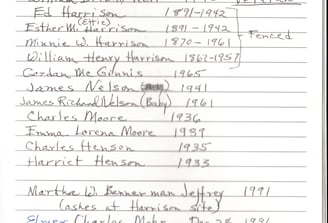 Ed Harrison 1891-1942
(Effie)
Esther M. Harrison 1891-1942
Minnie W. Harrison 1870-1961
Fenced
William Henry Harrison 1862-1957
Gordon McGinnis 1965
James Nelson 1991
James Richard Nelson (Baby) 1961
Charles Moore 1936
Emma Lorena Moore 1989
Charles Henson 1935
Harriet Henson 1933
Martha W. Bennerman Jeffrey 1991
(ashes at Harrison site)
Charles